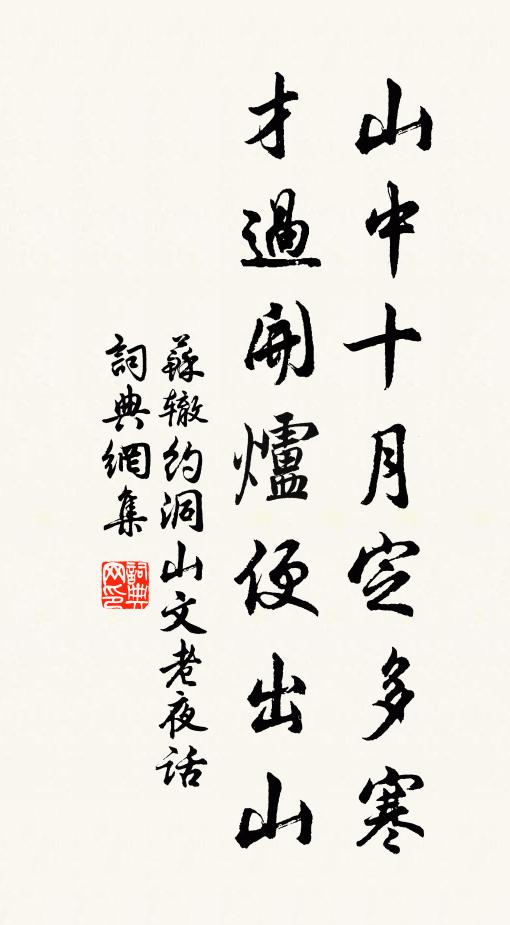 山中十月定多寒
才過開爐便出山
蘇轍約洞山文老夜话
詞典網集
詞典网印